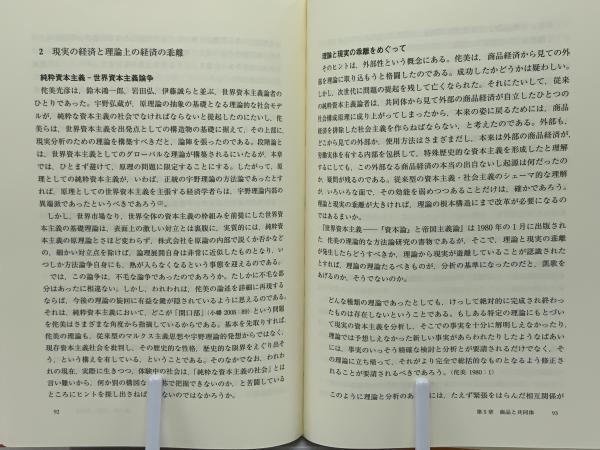 2　現実の経済と理論上の経済の乖離
純粋資本主義－世界資本主義論争
侘美光彦は、鈴木鴻一郎、岩田弘、伊藤誠らと並ぶ、世界資本主義論者の
ひとりであった。宇野弘蔵が、原理論の抽象の基礎となる理論的な社会モデ
ルが、純粋な資本主義の社会でなければならないと提起したのにたいし、侘
美らは、世界資本主義を出発点としての構造物の基礎に据えて、その上部に
現実分析のための理論を構築すべきだと、論陣を張ったのである。段階論と
は、世界市場としてのグローバルな理論が構築されるにいたるが、本章
では、ひとまず避けて、原理の問題に限定することにする。したがって、原
理としての純粋資本主義が、いわば、正統の宇野理論の方法論であったとす
れば、原理としての世界資本主義を主張する経済学者らは、宇野理論内部の
異端派であったというべきであろう
しかし、世界市場なり、世界全体の資本主義の枠組みを前提にした世界資
本主義の基礎理論は、表面上の激しい対立とは裏腹に、実質的には、純粋資
本主義の原理論とさほど変わらず、株式会社を原論の内部で説くか否かなど
の、細かい対立点を除けば、論理展開自身は非常に近似したものとなり、い
つしか方法論争自身にも、熱が入らなくなるという事態を迎えるのである。
では、この論争は、不毛な論争であったのであろうか。たしかに不毛な部
分はあったに相違ない。しかし、われわれは、侘美の論述を詳細に再現する
ならば、今後の理論の旋回に有益な鍵が隠されているように思えるのである。
それは、純粋資本主義において、どこが「開口部」（小幡 2008：89）という問題
を侘美はさまざまな角度から指摘しているからである。基本を先取りすれば、
侘美の理論も、従来型のマルクス主義思想や宇野理論的発想からではなく、
現存資本主義社会を批判し、その歴史的な骨格、歴史的な限界をえぐり出そ
う、という構えを有している、ということである。そのなかでなお、われわ
れの現在、実際に生きつつ、体験中の社会は、「純粋な資本主義の社会」とは
言い難いから、何か別の構図な
で把握できないのか、と苦闘している
ところにヒントを探し出さねば
ないのではなかろうか。
92
理論と現実の乖離をめぐって
そのヒントは、外部性という概念にある。侘美は、商品経済から見ての外
部を理論に取り込もうと格闘したのである。成功したかどうかは疑わしい。
しかし、次世代に問題の提起を残して亡くなられた。それにたいして、従来
の純粋資本主義論者は、共同体から見て外部の商品経済が自立したひとつの
社会構成原理に成り上がってしまったから、本来の姿に戻るためには、商品
経済を排除した社会主義を作らねばならない、と考えたのである。外部も、
どこから見ての外部か、使用方法はさまざまだし、本来は外部の商品経済が、
労働実体を有する内部を包摂して、特殊歴史的な資本主義を形成したと理解
するにしても、この外部なる商品経済の本当の出自ないし起源は何だったの
か、疑問が残るのである。従来型の資本主義・社会主義のシェーマ的な理解
が、いろいろな面で、その効能を弱めつつあることだけは、確かであろう。
理論と現実の乖離が大きければ、理論の根本構造にまで改革が必要になるの
ではあるまいか。
『世界資本主義――『資本論』と帝国主義論』は 1980 年の 1 月に出版され
た、侘美の理論的な方法論研究の書物であるが、そこで、理論と現実の乖離
が発生したらどうすべきか、理論から現実が遊離していることが認識された
とすれば、理論の理論たるべきものが、分析の基準になったのだと、凱歌を
あげるのか、そうでないのか。
どんな種類の理論であったとしても、けっして絶対的に完成され終わっ
たものは存在しないということである。もしある特定の理論にもとづい
て現実の資本主義を分析し、そこでの事実を十分に解明しえなかったり、
理論では予想しえなかった新しい事実があらわれたりしたようなばあい
には、事実のいっそう精確な検討と分析とが要請されるだけでなく、そ
の理論に立ち帰って、それがより完全で総括的なものとなるよう修正さ
れることが要請されるべきであろう。（侘美 1980：i）
このように理論と分析のあ
には、たえず緊張をはらんだ相互関係が
第5章　商品と共同体　93